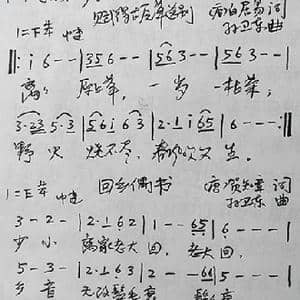 赋得古原草送别 唐白居易词
1=下E 中速 孙卫东曲
‖: i 6 - - | 3 5 6 - - | 5 6 3 - - | 5 6 3 - - |
离离 原上草, 一岁 一枯荣,
3·23 5·3 | 5 6 i 6 3 | 2·1 i 6 5 | 6 - - - :‖
野火 烧不尽, 春风吹又生。
中速 回乡偶书 唐贺知章词
孙卫东曲
3 - 2 - | 2·1 6 2 | 1 - - 6 5 | 6 - - - |
少小 离家老大回, 老大回,
5 - 3 - | 2·1 6 3 | 2 - - 6 6 | 5 - - - |
乡音 无改鬓毛衰